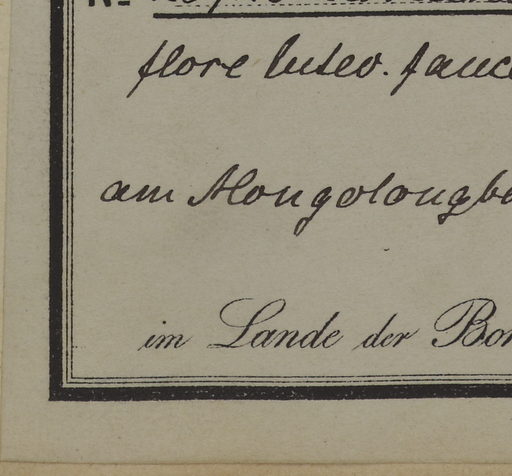 No
flore luteo. fauce
am Mongolongbe
im Lande der Bon